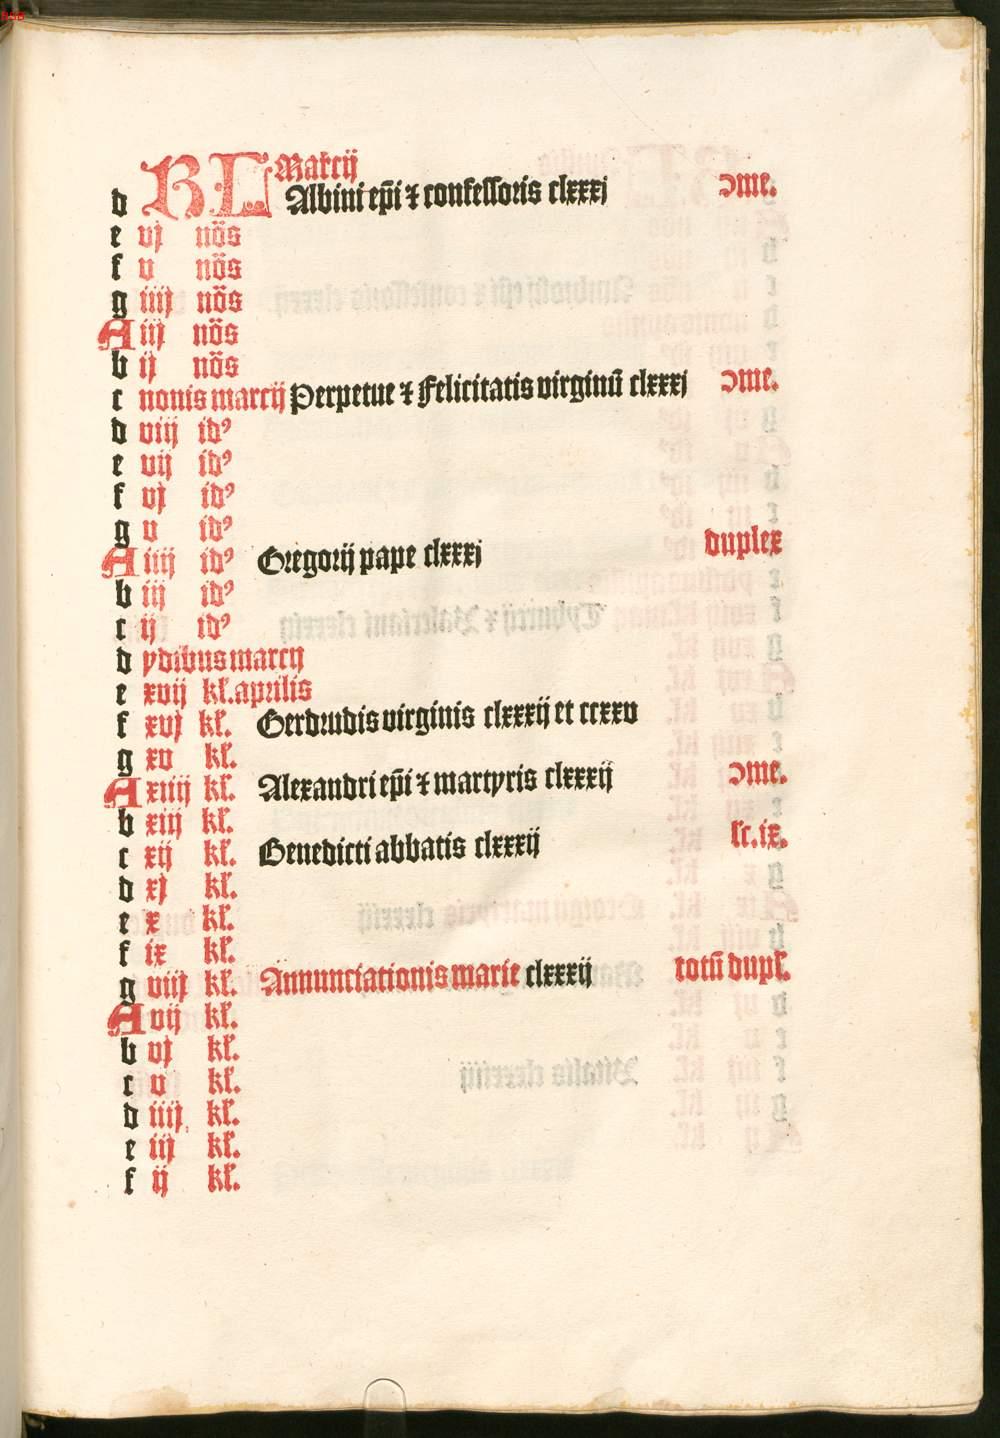 KL Marcij
d Albini ep̄i ⁊ confessoris clxxxj ɔme.
e vj nōs
f v nōs
g iiij nōs
A iij nōs
b ij nōs
c nonis marcij Perpetue ⁊ Felicitatis virginū clxxxj ɔme.
d viij idꝰ
e vij idꝰ
f vj idꝰ
g v idꝰ
A iiij idꝰ Gregorij pape clxxxj duplex
b iij idꝰ
c ij idꝰ
d ydibus marcij
e xvij kł. aprilis
f xvj kł. Gerdrudis virginis clxxxij et ccxxv
g xv kł.
A xiiij kł. Alexandri ep̄i ⁊ martyris clxxxij ɔme.
b xiij kł.
c xij kł. Benedicti abbatis clxxxij lc. ix.
d xj kł.
e x kł.
f ix kł.
g viij kł. Annunciationis marie clxxxij totū dupł.
A vij kł.
b vj kł.
c v kł.
d iiij kł.
e iij kł.
f ij kł.